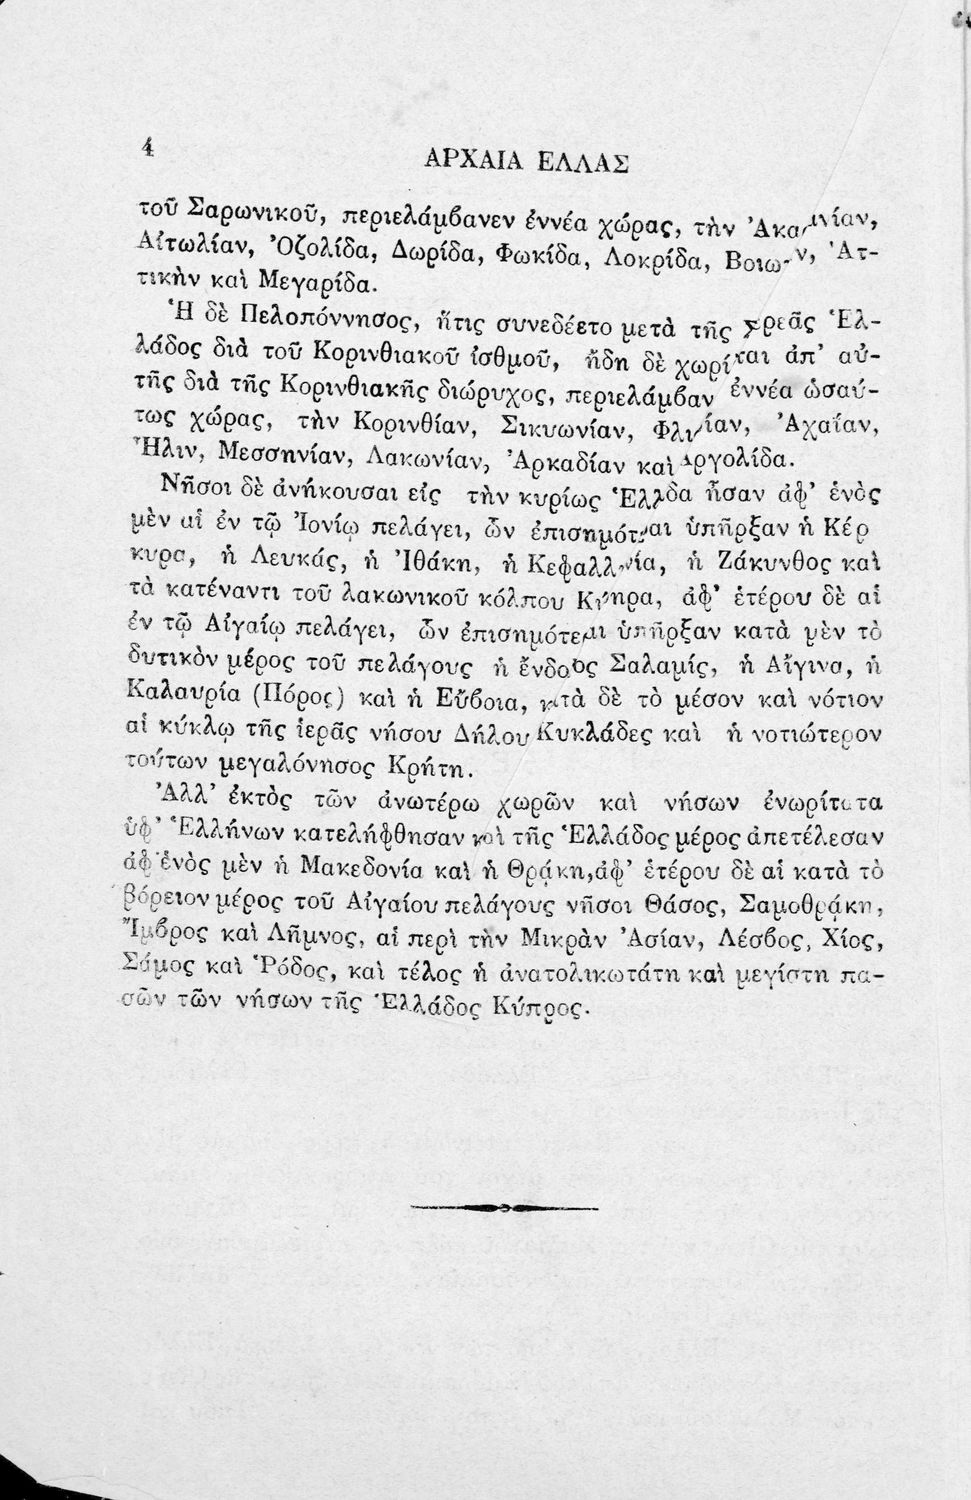 4
ΑΡΧΑΙΑ ΕΛΛΑΣ
τοῦ Σαρωνικοῦ, περιελάμβανεν ἐννέα χώρας, τὴν
Αἰτωλίαν, Ὀζολίδα, Δωρίδα, Φωκίδα, Λοκρίδα, Ἀτ-
τικὴν καὶ Μεγαρίδα.
Ἡ δὲ Πελοπόννησος, ἥτις συνεδέετο μετὰ τῆς Ἑλ-
λάδος διὰ τοῦ Κορινθιακοῦ ἰσθμοῦ, ἤδη δὲ ἀπ’ αὐ-
τῆς διὰ τῆς Κορινθιακῆς διώρυχος, περιελάμβαν ἐννέα ὡσαύ-
τως χώρας, τὴν Κορινθίαν, Σικυωνίαν, Ἀχαΐαν,
Ἦλιν, Μεσσηνίαν, Λακωνίαν, Ἀρκαδίαν καὶ Ἀργολίδα.
Νῆσοι δὲ ἀνήκουσαι εἰς τὴν κυρίως ἦσαν ἀφ’ ἑνὸς
μὲν αἱ ἐν τῷ Ἰονίῳ πελάγει, ὧν ὑπῆρξαν ἡ Κέρ
κυρα, ἡ Λευκάς, ἡ Ἰθάκη, ἡ ἡ Ζάκυνθος καὶ
τὰ κατέναντι τοῦ λακωνικοῦ κόλπου ἀφ’ ἑτέρου δὲ αἱ
ἐν τῷ Αἰγαίῳ πελάγει, ὧν ἐπισημότεραι ὑπῆρξαν κατὰ μὲν τὸ
δυτικὸν μέρος τοῦ πελάγους ἡ ἔνδοξος Σαλαμίς, ἡ Αἴγινα, ἡ
Καλαυρία (Πόρος) καὶ ἡ Εὔβοια, κατὰ δὲ τὸ μέσον καὶ νότιον
αἱ κύκλῳ τῆς ἱερᾶς νήσου Δήλου Κυκλάδες καὶ ἡ νοτιώτερον
τούτων μεγαλόνησος Κρήτη.
Ἀλλ’ ἐκτὸς τῶν ἀνωτέρω χωρῶν καὶ νήσων ἐνωρίτατα
ὑφ’ Ἑλλήνων κατελήφθησαν καὶ τῆς Ἑλλάδος μέρος ἀπετέλεσαν
ἀφ’ ἑνὸς μὲν ἡ Μακεδονία καὶ ἡ Θράκη, ἀφ’ ἑτέρου δὲ αἱ κατὰ τὸ
βόρειον μέρος τοῦ Αἰγαίου πελάγους νῆσοι Θάσος, Σαμοθράκη,
Ἴμβρος καὶ Λῆμνος, αἱ περὶ τὴν Μικρὰν Ἀσίαν, Λέσβος, Χίος,
Σάμος καὶ Ῥόδος, καὶ τέλος ἡ ἀνατολικωτάτη καὶ μεγίστη πα-
σῶν τῶν νήσων τῆς Ἑλλάδος Κύπρος.